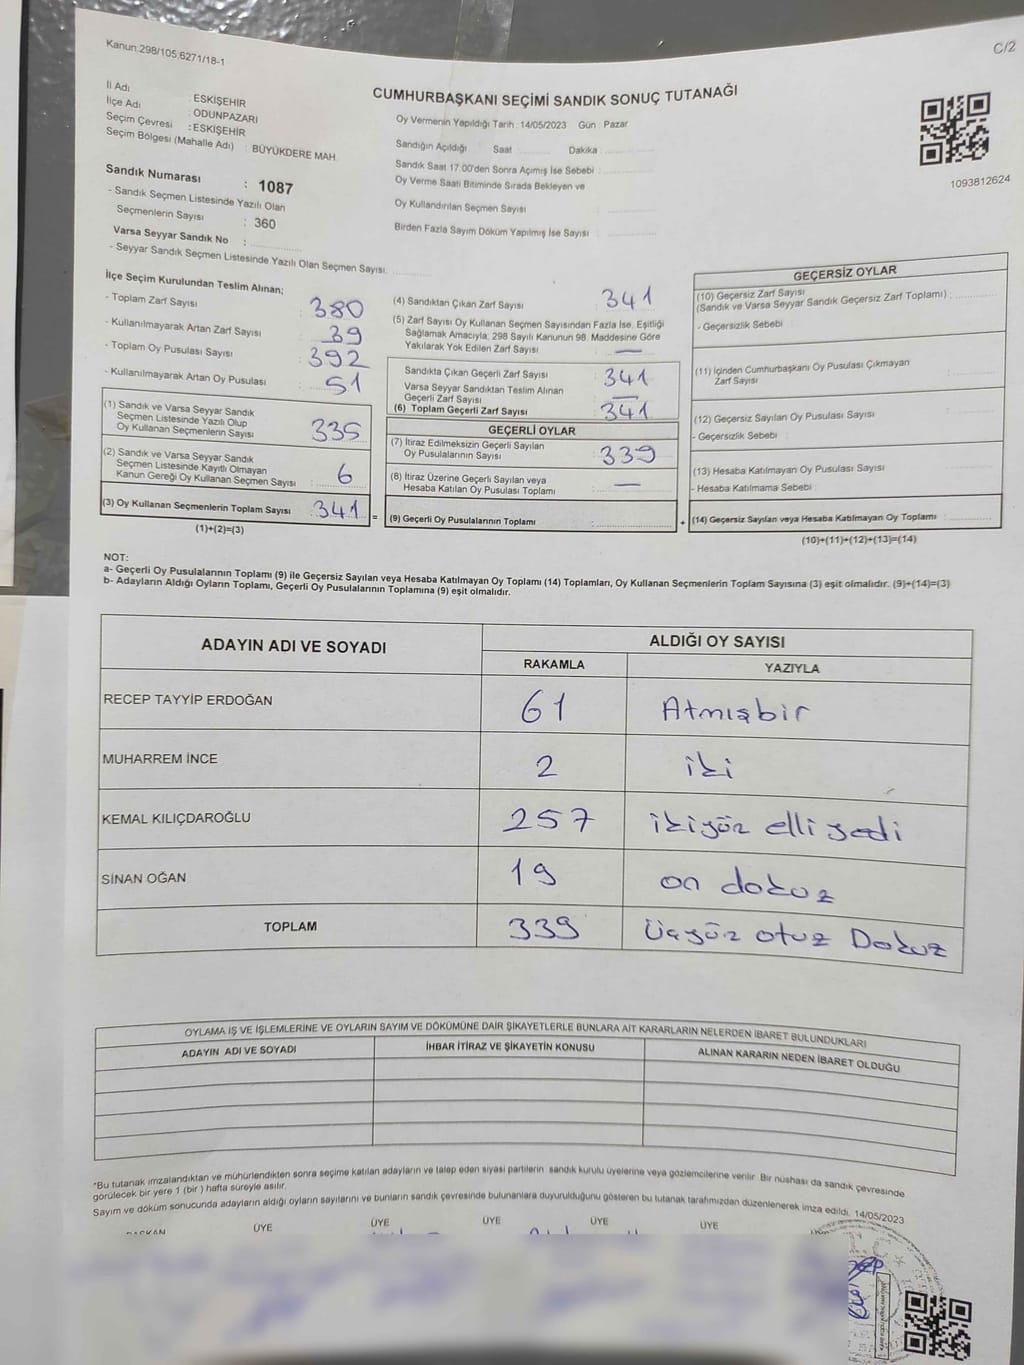 Kanun:298/105,6271/18-1
C/2
CUMHURBAŞKANI SEÇİMİ SANDIK SONUÇ TUTANAĞI
İl Adı : ESKİŞEHİR
İlçe Adı : ODUNPAZARI
Seçim Çevresi : ESKİŞEHİR
Seçim Bölgesi (Mahalle Adı) : BÜYÜKDERE MAH.
Sandık Numarası : 1087
- Sandık Seçmen Listesinde Yazılı Olan
Seçmenlerin Sayısı : 360
Varsa Seyyar Sandık No :
- Seyyar Sandık Seçmen Listesinde Yazılı Olan Seçmen Sayısı:
Oy Vermenin Yapıldığı Tarih : 14/05/2023 Gün : Pazar
Sandığın Açıldığı Saat Dakika
Sandık Saat 17:00'den Sonra Açımış İse Sebebi :
Oy Verme Saati Bitiminde Sırada Bekleyen ve
Oy Kullandırılan Seçmen Sayısı :
Birden Fazla Sayım Döküm Yapılmış İse Sayısı :
1093812624
İlçe Seçim Kurulundan Teslim Alınan;
- Toplam Zarf Sayısı : 380
- Kullanılmayarak Artan Zarf Sayısı : 39
- Toplam Oy Pusulası Sayısı : 392
- Kullanılmayarak Artan Oy Pusulası : 51
(1) Sandık ve Varsa Seyyar Sandık
Seçmen Listesinde Yazılı Olup
Oy Kullanan Seçmenlerin Sayısı : 335
(2) Sandık ve Varsa Seyyar Sandık
Seçmen Listesinde Kayıtlı Olmayan
Kanun Gereği Oy Kullanan Seçmen Sayısı : 6
(3) Oy Kullanan Seçmenlerin Toplam Sayısı : 341
(1)+(2)=(3)
(4) Sandıktan Çıkan Zarf Sayısı : 341
(5) Zarf Sayısı Oy Kullanan Seçmen Sayısından Fazla İse, Eşitliği
Sağlamak Amacıyla; 298 Sayılı Kanunun 98. Maddesine Göre
Yakılarak Yok Edilen Zarf Sayısı : —
Sandıkta Çıkan Geçerli Zarf Sayısı : 341
Varsa Seyyar Sandıktan Teslim Alınan
Geçerli Zarf Sayısı : —
(6) Toplam Geçerli Zarf Sayısı : 341
GEÇERLİ OYLAR
(7) İtiraz Edilmeksizin Geçerli Sayılan
Oy Pusulalarının Sayısı : 339
(8) İtiraz Üzerine Geçerli Sayılan veya
Hesaba Katılan Oy Pusulası Toplamı : —
= (9) Geçerli Oy Pusulalarının Toplamı :
GEÇERSİZ OYLAR
(10) Geçersiz Zarf Sayısı
(Sandık ve Varsa Seyyar Sandık Geçersiz Zarf Toplamı) :
- Geçersizlik Sebebi :
(11) İçinden Cumhurbaşkanı Oy Pusulası Çıkmayan
Zarf Sayısı :
(12) Geçersiz Sayılan Oy Pusulası Sayısı :
- Geçersizlik Sebebi :
(13) Hesaba Katılmayan Oy Pusulası Sayısı :
- Hesaba Katılmama Sebebi :
+ (14) Geçersiz Sayılan veya Hesaba Katılmayan Oy Toplamı :
(10)+(11)+(12)+(13)=(14)
NOT:
a- Geçerli Oy Pusulalarının Toplamı (9) ile Geçersiz Sayılan veya Hesaba Katılmayan Oy Toplamı (14) Toplamları, Oy Kullanan Seçmenlerin Toplam Sayısına (3) eşit olmalıdır. (9)+(14)=(3)
b- Adayların Aldığı Oyların Toplamı, Geçerli Oy Pusulalarının Toplamına (9) eşit olmalıdır.
ADAYIN ADI VE SOYADI ALDIĞI OY SAYISI
RAKAMLA YAZIYLA
RECEP TAYYİP ERDOĞAN 61 Atmışbir
MUHARREM İNCE 2 iki
KEMAL KILIÇDAROĞLU 257 ikiyüz elli yedi
SİNAN OĞAN 19 on dokuz
TOPLAM 339 Üçyüz otuz Dokuz
OYLAMA İŞ VE İŞLEMLERİNE VE OYLARIN SAYIM VE DÖKÜMÜNE DAİR ŞİKAYETLERLE BUNLARA AİT KARARLARIN NELERDEN İBARET BULUNDUKLARI
ADAYIN ADI VE SOYADI İHBAR İTİRAZ VE ŞİKAYETİN KONUSU ALINAN KARARIN NEDEN İBARET OLDUĞU
*Bu tutanak imzalandıktan ve mühürlendikten sonra seçime katılan adayların ve talep eden siyasi partilerin sandık kurulu üyelerine veya gözlemcilerine verilir. Bir nüshası da sandık çevresinde
görülecek bir yere 1 (bir) hafta süreyle asılır.
Sayım ve döküm sonucunda adayların aldığı oyların sayılarını ve bunların sandık çevresinde bulunanlara duyurulduğunu gösteren bu tutanak tarafımızdan düzenlenerek imza edildi. 14/05/2023
BAŞKAN ÜYE ÜYE ÜYE ÜYE ÜYE